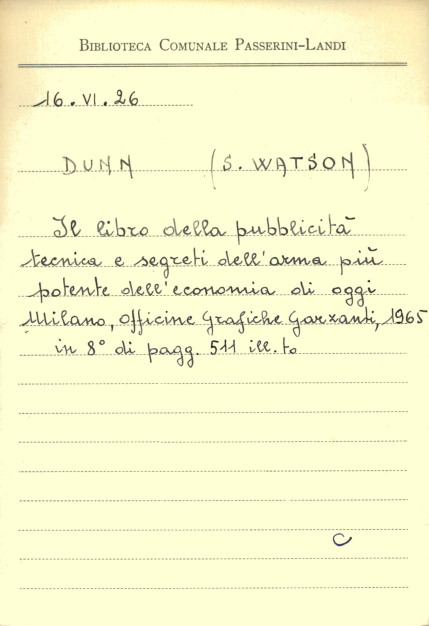 BIBLIOTECA COMUNALE PASSERINI-LANDI
16.VI.26
DUNN (S. WATSON)
Il libro della pubblicità
tecnica e segreti dell'arma più
potente dell'economia di oggi
Milano, Officine Grafiche Garzanti, 1965
in 8° di pagg. 511 ill.to
C